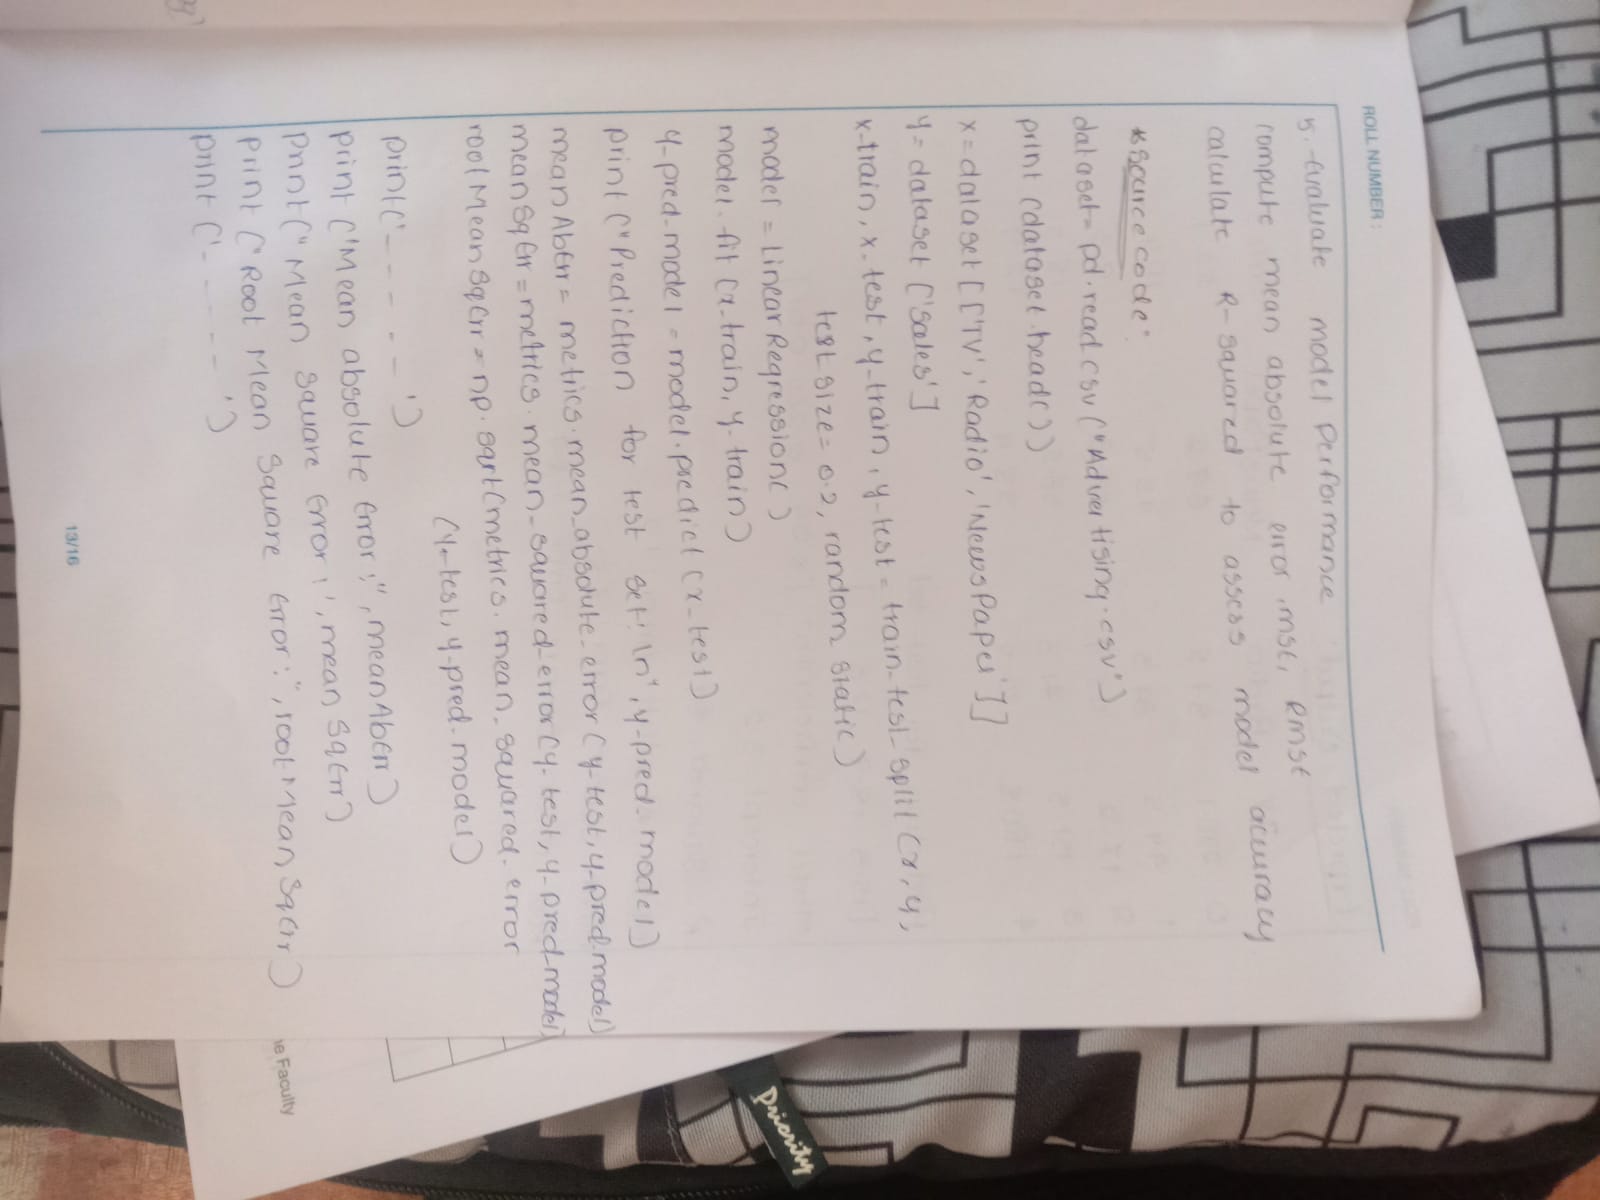 ROLL NUMBER :
5. Evaluate model performance
compute mean absolute error, mse, Rmse
calculate R-squared to assess model accuracy
* Source code:
dataset = pd.read csv ("Advertising.csv")
print (dataset.head())
x = dataset [['TV', 'Radio', 'NewsPaper']]
y = dataset ['Sales']
x-train, x-test, y-train, y-test = train-test-split (x, y,
test size = 0.2, random static)
model = LinearRegression()
model.fit (x-train, y-train)
y-pred-model = model.predict (x-test)
print ("Prediction for test set: \n", y-pred-model)
meanAbErr = metrics.mean_absolute_error (y-test, y-pred-model)
meanSqErr = metrics.mean_squared_error (y-test, y-pred-model)
rootMeanSqErr = np.sqrt (metrics.mean_squared_error
(y-test, y-pred-model)
print('- - - - -')
print ('Mean absolute Error:", meanAbErr)
print (" Mean square Error:', mean SqErr)
print (" Root Mean Square Error:", rootMeanSqErr)
print ('- - - - -')
13/16
he Faculty
Priority